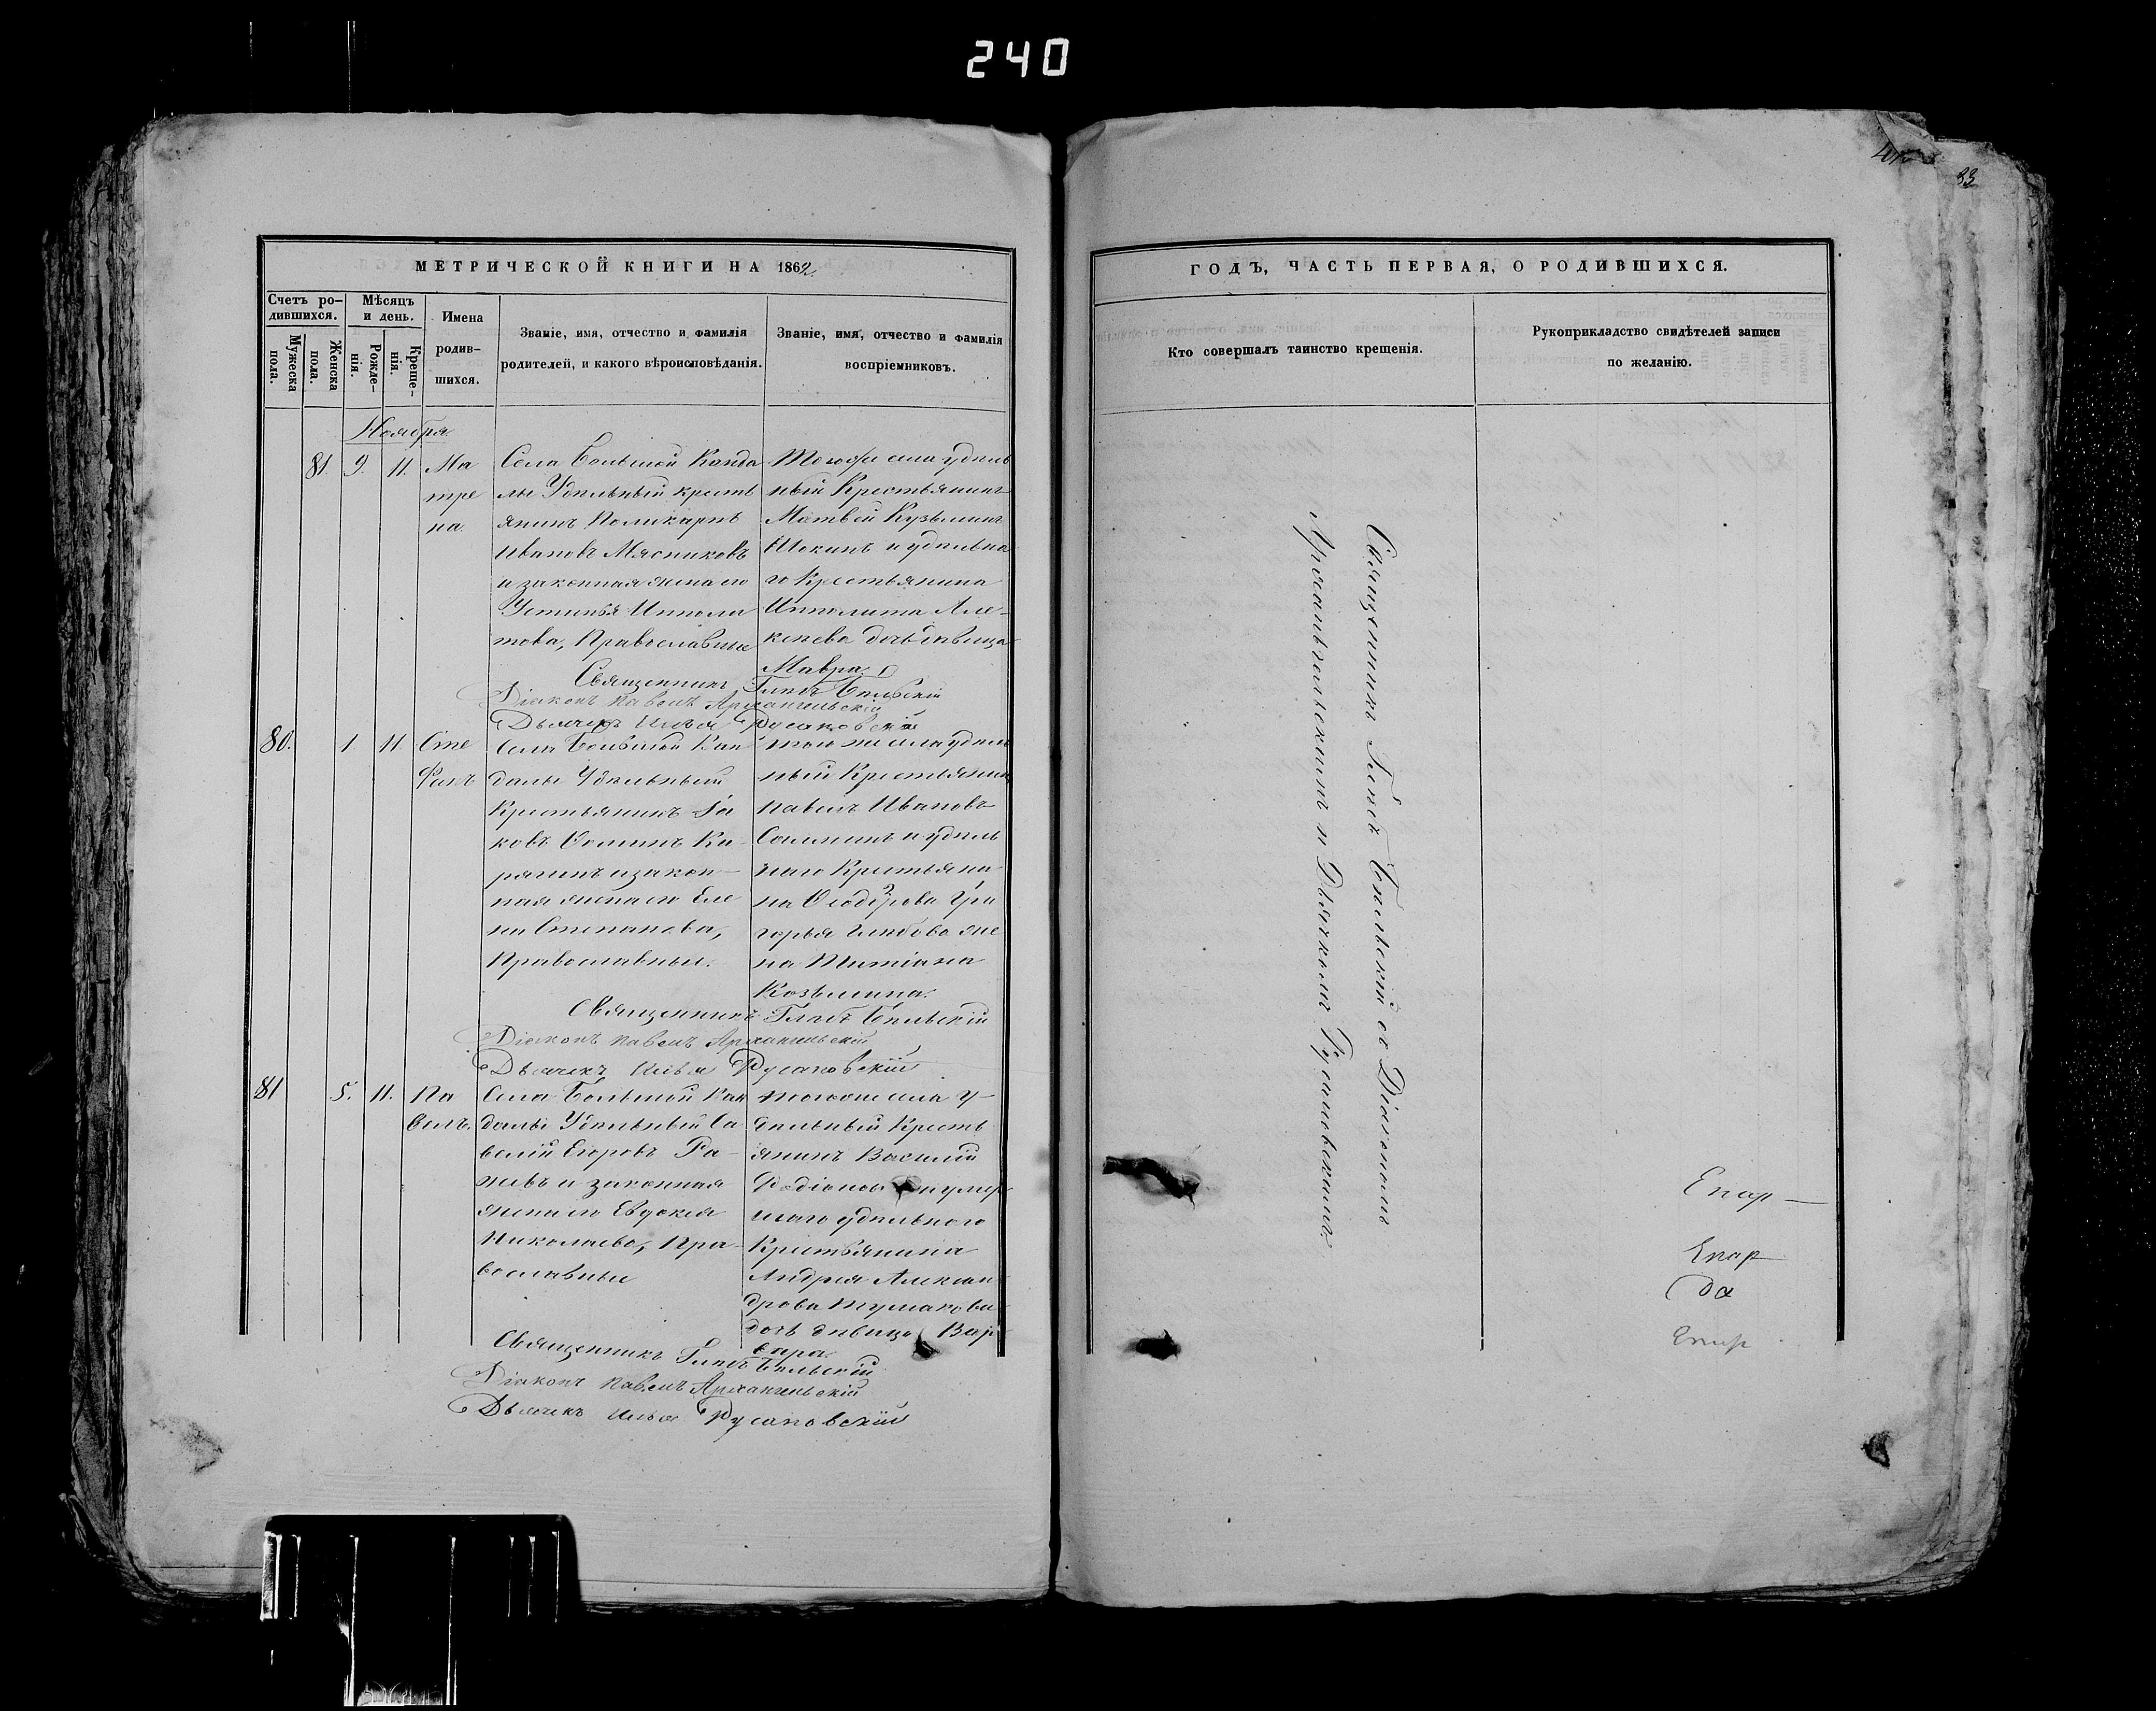 240
83
МЕТРИЧЕСКОЙ КНИГИ НА 1862
Счетъ ро-
дившихся.
Мужеска
пола.
Женска
пола.
Мѣсяцъ
и день.
Рожде-
нія.
Креще-
нія.
Имена
родив-
шихся.
Званіе, имя, отчество и фамилія
родителей, и какого вѣроисповѣданія.
Званіе, имя, отчество и фамилія
воспріемниковъ.
Ноября
81. 9. 11. Ма
тре
на
Села Большой Канда
лы Удѣльный кресть
янинъ Поликарпъ
Ивановъ Мясниковъ
и законная жена его
Устинья Иппали
това, Православные
Тогоже села удѣль
ный Крестьянинъ
Матвѣй Кузьминъ
и удѣльна
го Крестьянина
Ипполита Але-
ксѣева дочь дѣвица
Мавра
Священникъ Глѣбъ Бѣльскій
Діаконъ Павелъ Архангельскій
Дьячекъ Илья Русановскій
80. 1 11 Сте
фанъ
Села Большой Кан
далы Удѣльный
Крестьянинъ Іа
ковъ Ѳоминъ Ка-
рягинъ и закон-
ная жена его Еле
на Степанова,
Православные.
того же села удѣль
ный Крестьянинъ
Павелъ Ивановъ
и удѣль
наго Крестьяни
на Ѳеодорова Гри
горья Глѣбова же
на Татіана
Козьмина.
Священникъ Глѣбъ Бѣльскій
Діаконъ Павелъ Архангельскій
Дьячекъ Илья Русановскій
81 5. 11. Па
велъ.
Села Большой Кан
далы Удѣльный Са
велій Егоровъ Ра-
жевъ и законная
жена его Евдокія
Николаева, Пра-
вославные
тогоже села У-
дѣльный Кресть
янинъ Василій
Родіоновъ и умер
шаго удѣльнаго
Крестьянина
Андрея Алексан
дрова Тумакова
дочь дѣвица Вар
вара.
Священникъ Глѣбъ Бѣльскій
Діаконъ Павелъ Архангельскій
Дьячекъ Илья Русановскій
ГОДЪ, ЧАСТЬ ПЕРВАЯ, О РОДИВШИХСЯ.
Кто совершалъ таинство крещенія.
Рукоприкладство свидѣтелей записи
по желанію.
Священникъ Глѣбъ Бѣльскій съ Діакономъ
Архангельскимъ и Дьячкомъ Русановскимъ
Епар
Епар
да
Епар